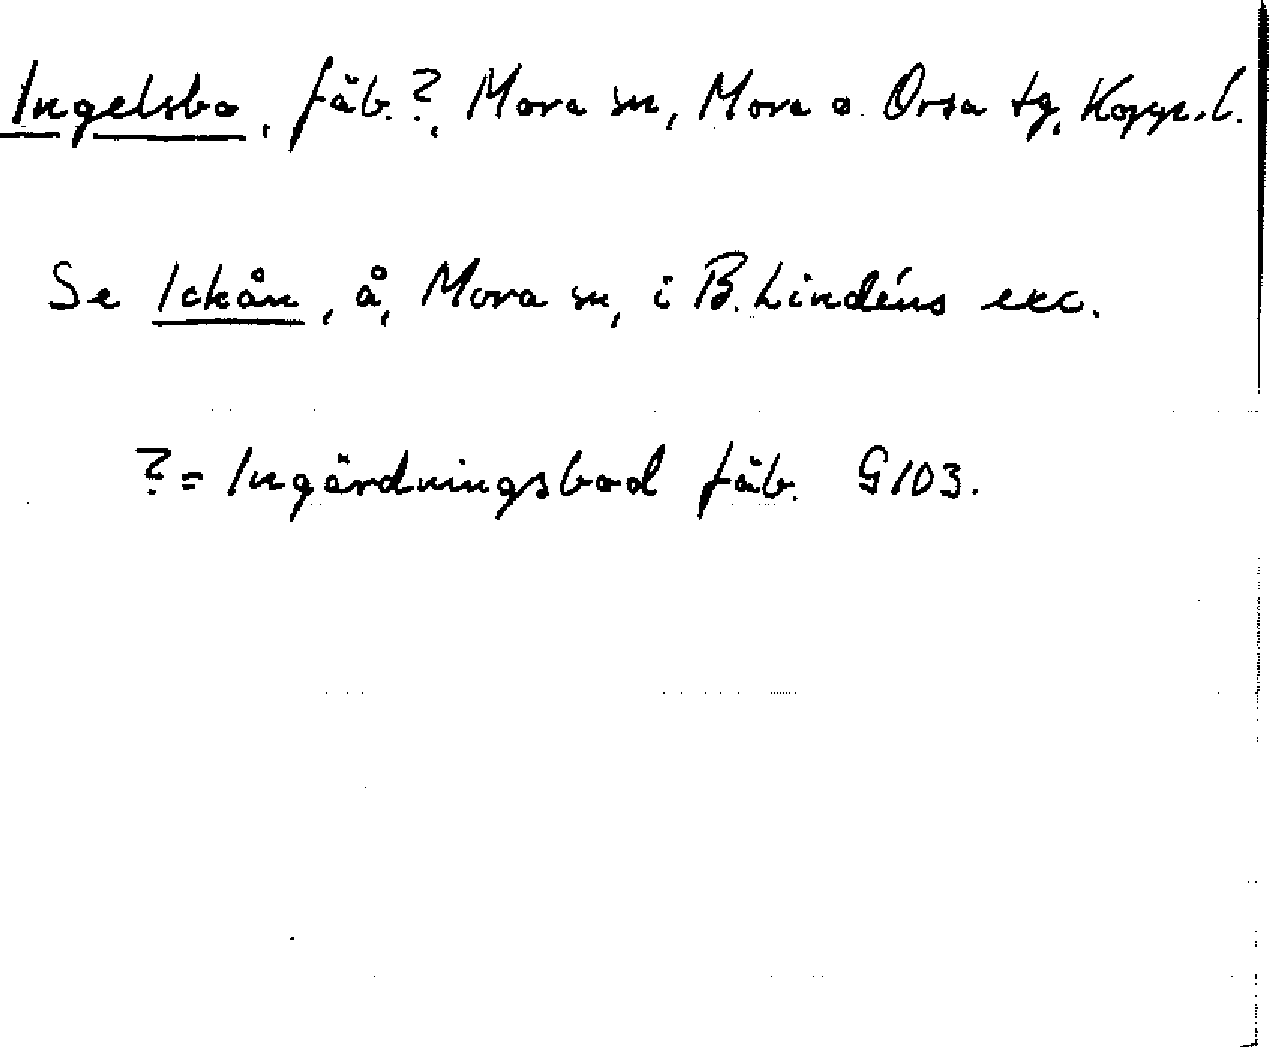 Ingelsbo, fäb.?, Mora sn, Mora o. Orsa tg, Kopp.l.
Se Ickån, å, Mora sn, i B. Lindéns exc.
?= Ingärdningsbod fäb. G103.